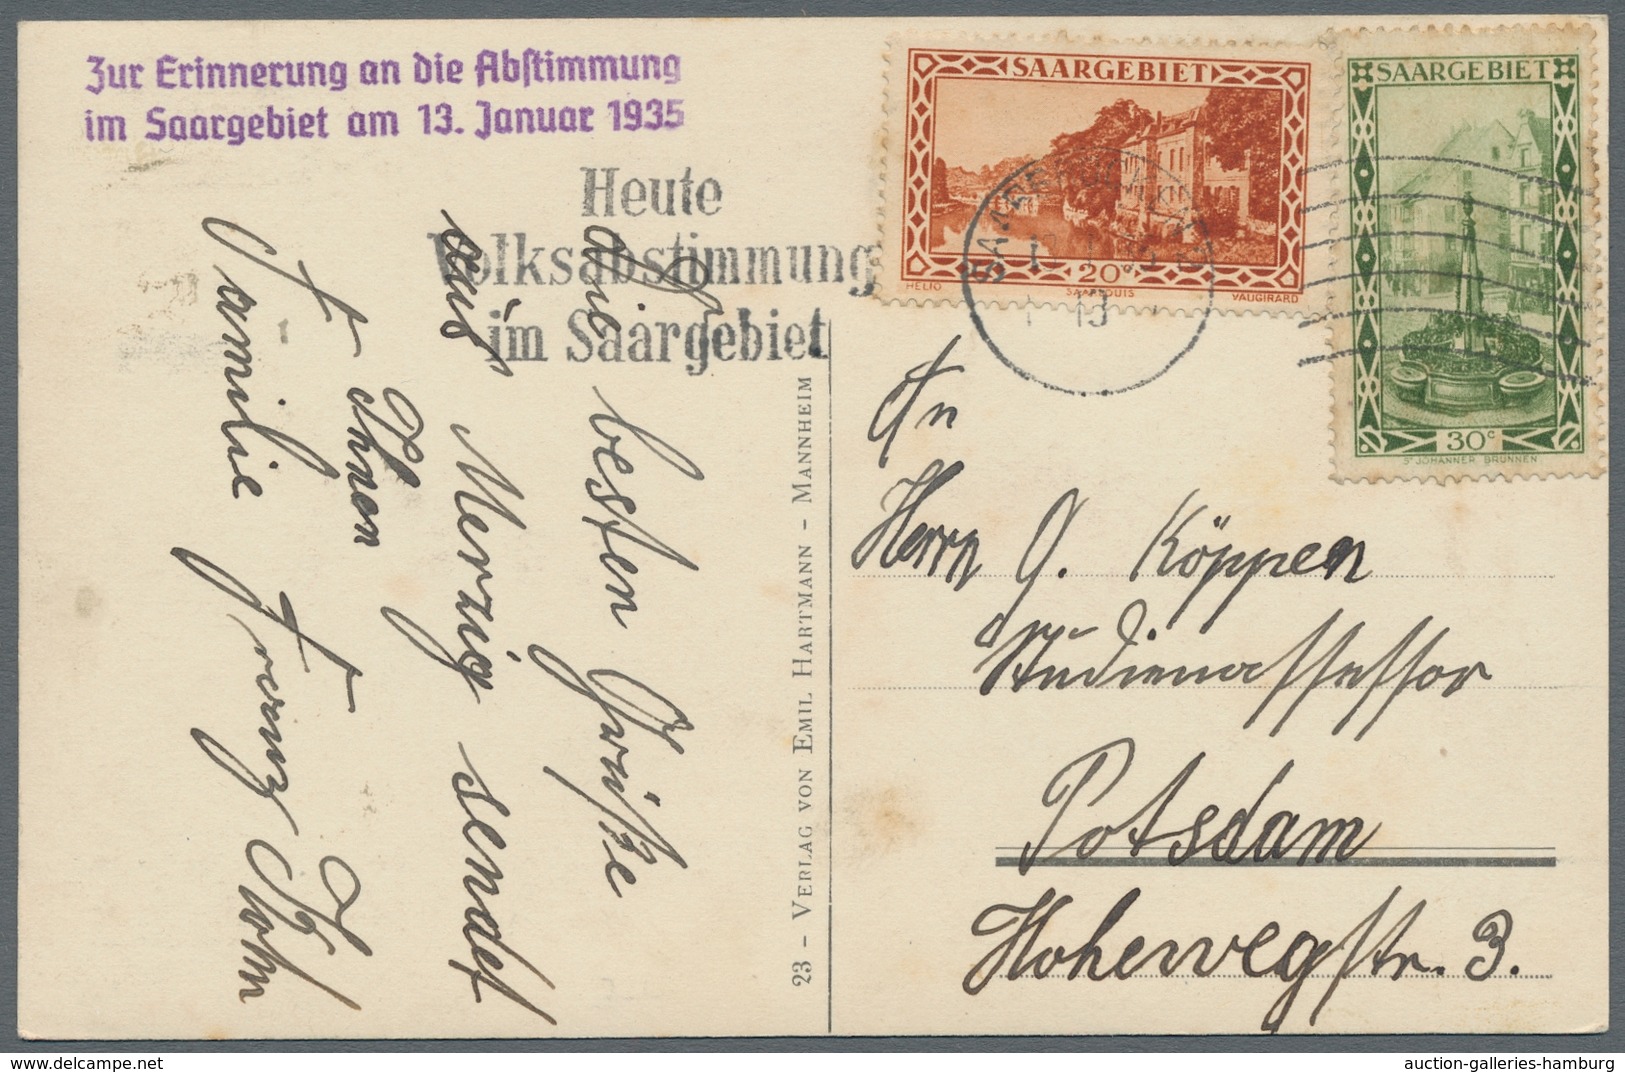 Zur Erinnerung an die Abstimmung
im Saargebiet am 13. Januar 1935
Heute
Volksabstimmung
im Saargebiet
SAARGEBIET
20ᶜ
HELIO
SAARLOUIS
VAUGIRARD
SAARGEBIET
30ᶜ
Sᵀ JOHANNER BRUNNEN
13
Die besten Grüße
aus Merzig sendet
Ihnen
Familie Franz
23 – VERLAG VON EMIL HARTMANN – MANNHEIM
An
Herrn G. Köppen
Studienassessor
Potsdam
Hohewegstr. 3.
delcampe.net
auction-galleries-hamburg